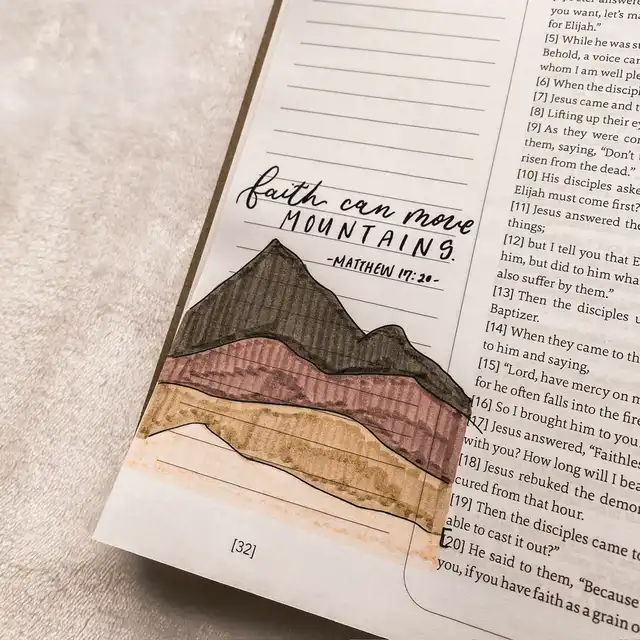 faith can move
MOUNTAINS.
-MATTHEW 17:20-
[32]
you want, let's
for Elijah."
[5] While he was
Behold, a voice
whom I am well
[6] When the
[7] Jesus came and
[8] Lifting up their
[9] As they were
them, saying, "Don't
risen from the dead."
[10] His disciples
Elijah must come first?
[11] Jesus answered
things;
[12] but I tell you that
him, but did to him
also suffer by them."
[13] Then the disciples
Baptizer.
[14] When they came to
to him and saying,
[15] "Lord, have mercy on
for he often falls into the
[16] So I brought him to
[17] Jesus answered,
with you? How long will I
[18] Jesus rebuked the
cured from that hour.
[19] Then the disciples came
able to cast it out?"
[20] He said to them, "Because
you, if you have faith as a grain